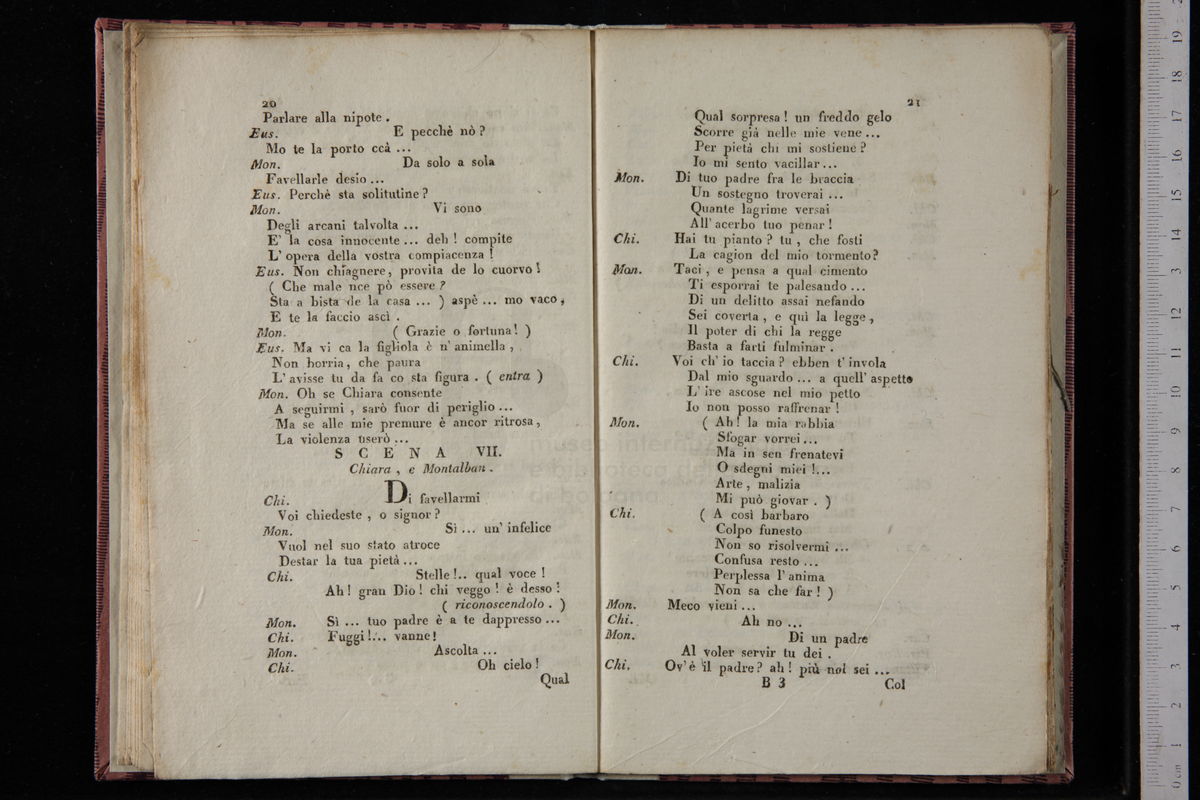 20
Parlare alla nipote .
Eus. E pecchè nò ?
Mo te la porto ccà ...
Mon. Da solo a sola
Favellarle desio ...
Eus. Perchè sta solitutine ?
Mon. Vi sono
Degli arcani talvolta ...
E' la cosa innocente ... deh ! compite
L' opera della vostra compiacenza !
Eus. Non chiagnere, provita de lo cuorvo !
( Che male nce pò essere ?
Sta a bista de la casa ... ) aspè ... mo vaco ,
E te la faccio ascì .
Mon. ( Grazie o fortuna! )
Eus. Ma vi ca la figliola è n' animella ,
Non borria, che paura
L' avisse tu da fa co sta figura . ( entra )
Mon. Oh se Chiara consente
A seguirmi , sarò fuor di periglio ...
Ma se alle mie premure è ancor ritrosa ,
La violenza userò ...
S C E N A VII.
Chiara , e Montalban .
Chi. Di favellarmi
Voi chiedeste , o signor ?
Mon. Sì ... un' infelice
Vuol nel suo stato atroce
Destar la tua pietà ...
Chi. Stelle !.. qual voce !
Ah ! gran Dio ! chi veggo ! è desso !
( riconoscendolo . )
Mon. Sì ... tuo padre è a te dappresso ...
Chi. Fuggi !... vanne !
Mon. Ascolta ...
Chi. Oh cielo !
Qual
21
Qual sorpresa ! un freddo gelo
Scorre già nelle mie vene ...
Per pietà chi mi sostiene ?
Io mi sento vacillar ...
Mon. Di tuo padre fra le braccia
Un sostegno troverai ...
Quante lagrime versai
All' acerbo tuo penar !
Chi. Hai tu pianto ? tu , che fosti
La cagion del mio tormento?
Mon. Taci , e pensa a qual cimento
Ti esporrai te palesando ...
Di un delitto assai nefando
Sei coverta , e quì la legge ,
Il poter di chi la regge
Basta a farti fulminar .
Chi. Voi ch' io taccia ? ebben t' invola
Dal mio sguardo ... a quell' aspetto
L' ire ascose nel mio petto
Io non posso raffrenar !
Mon. ( Ah ! la mia rabbia
Sfogar vorrei ...
Ma in sen frenatevi
O sdegni miei !...
Arte , malizia
Mi può giovar . )
Chi. ( A così barbaro
Colpo funesto
Non so risolvermi ...
Confusa resto ...
Perplessa l' anima
Non sa che far ! )
Mon. Meco vieni ...
Chi. Ah no ...
Mon. Di un padre
Al voler servir tu dei .
Chi. Ov' è il padre ? ah ! più nol sei ...
B 3 Col